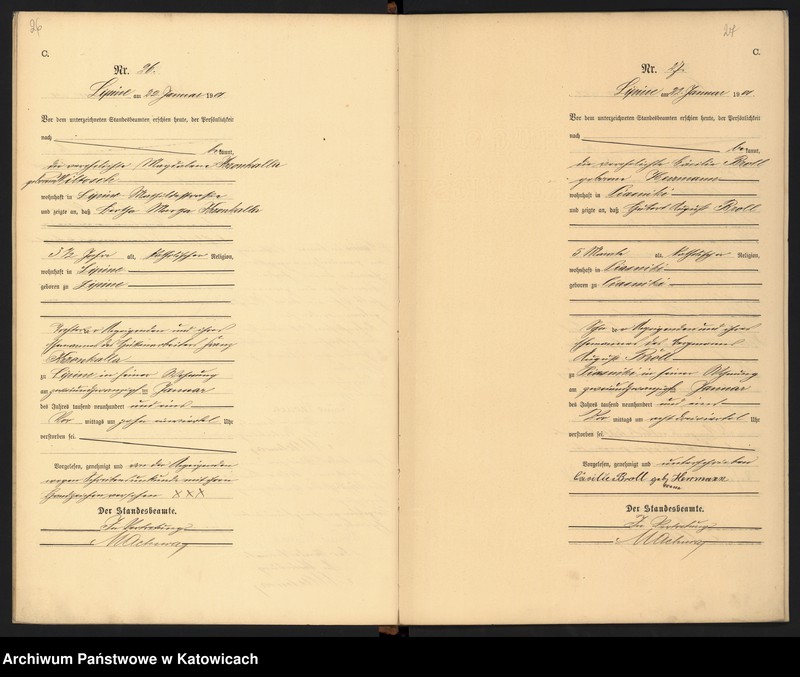 26
C.
Nr. 26.
Lipine am 22 Januar 1901
Vor dem unterzeichneten Standesbeamten erschien heute, der Persönlichkeit
nach
bekannt,
die verehelichte Magdalena Kronhalla
geborene
wohnhaft in Lipine
und zeigte an, daß Bertha Kronhalla
3 1/2 Jahr alt, katholischer Religion,
wohnhaft in Lipine
geboren zu Lipine
Tochter der Anzeigenden und ihres
Ehemannes des Hüttenarbeiter Franz
Kronhalla
zu Lipine in seiner Wohnung
am zweiundzwanzigsten Januar
des Jahres tausend neunhundert und eins
Vor mittags um zehn einviertel Uhr
verstorben sei.
Vorgelesen, genehmigt und von der Anzeigenden
wegen Schreibensunkunde mit ihren
Handzeichen versehen XXX
Der Standesbeamte.
In Vertretung
27
C.
Nr. 27.
Lipine am 22. Januar 1901
Vor dem unterzeichneten Standesbeamten erschien heute, der Persönlichkeit
nach
bekannt,
die verehelichte Cäcilie Broll
geborene Herrmann
wohnhaft in Piasniki
und zeigte an, daß Hubert August Broll
5 Monate alt, katholischer Religion,
wohnhaft in Piasniki
geboren zu Piasniki
Sohn der Anzeigenden und ihres
Ehemannes des Bergmann
August Broll
zu Piasniki in seiner Wohnung
am zweiundzwanzigsten Januar
des Jahres tausend neunhundert und eins
Vor mittags um acht dreiviertel Uhr
verstorben sei.
Vorgelesen, genehmigt und unterschrieben
Cäcilie Broll geb. Herrmann
Der Standesbeamte.
In Vertretung
Archiwum Państwowe w Katowicach